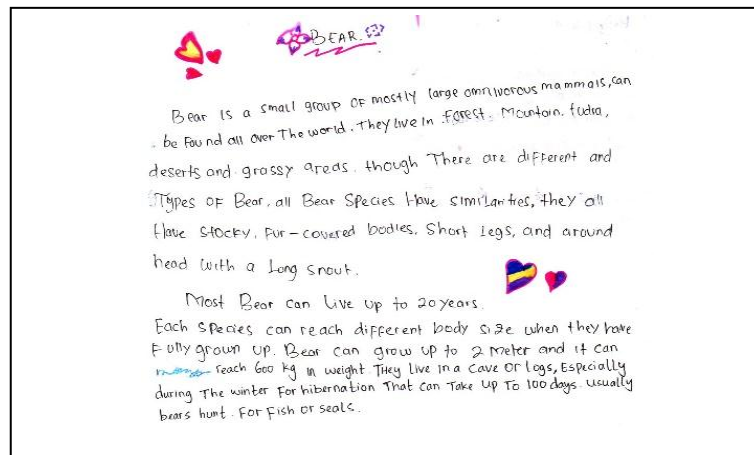 BEAR.
Bear Is a small group OF mostly large omnivorous mammals, can
be Found all over The world. They live In Forest. Mountain. tudra,
deserts and grassy areas. though There are different and
Types OF Bear. all Bear Species Have similarities, they all
Have Stocky, Fur-covered bodies, Short legs, and around
head with a Long snout.
Most Bear can Live up to 20 years.
Each Species can reach different body size when they have
Fully grown up. Bear can grow up to 2 Meter and it can
reach 600 kg in weight They live in a cave or logs, Especially
during The winter For hibernation That can Take Up To 100 days. usually
bears hunt. For Fish or seals.